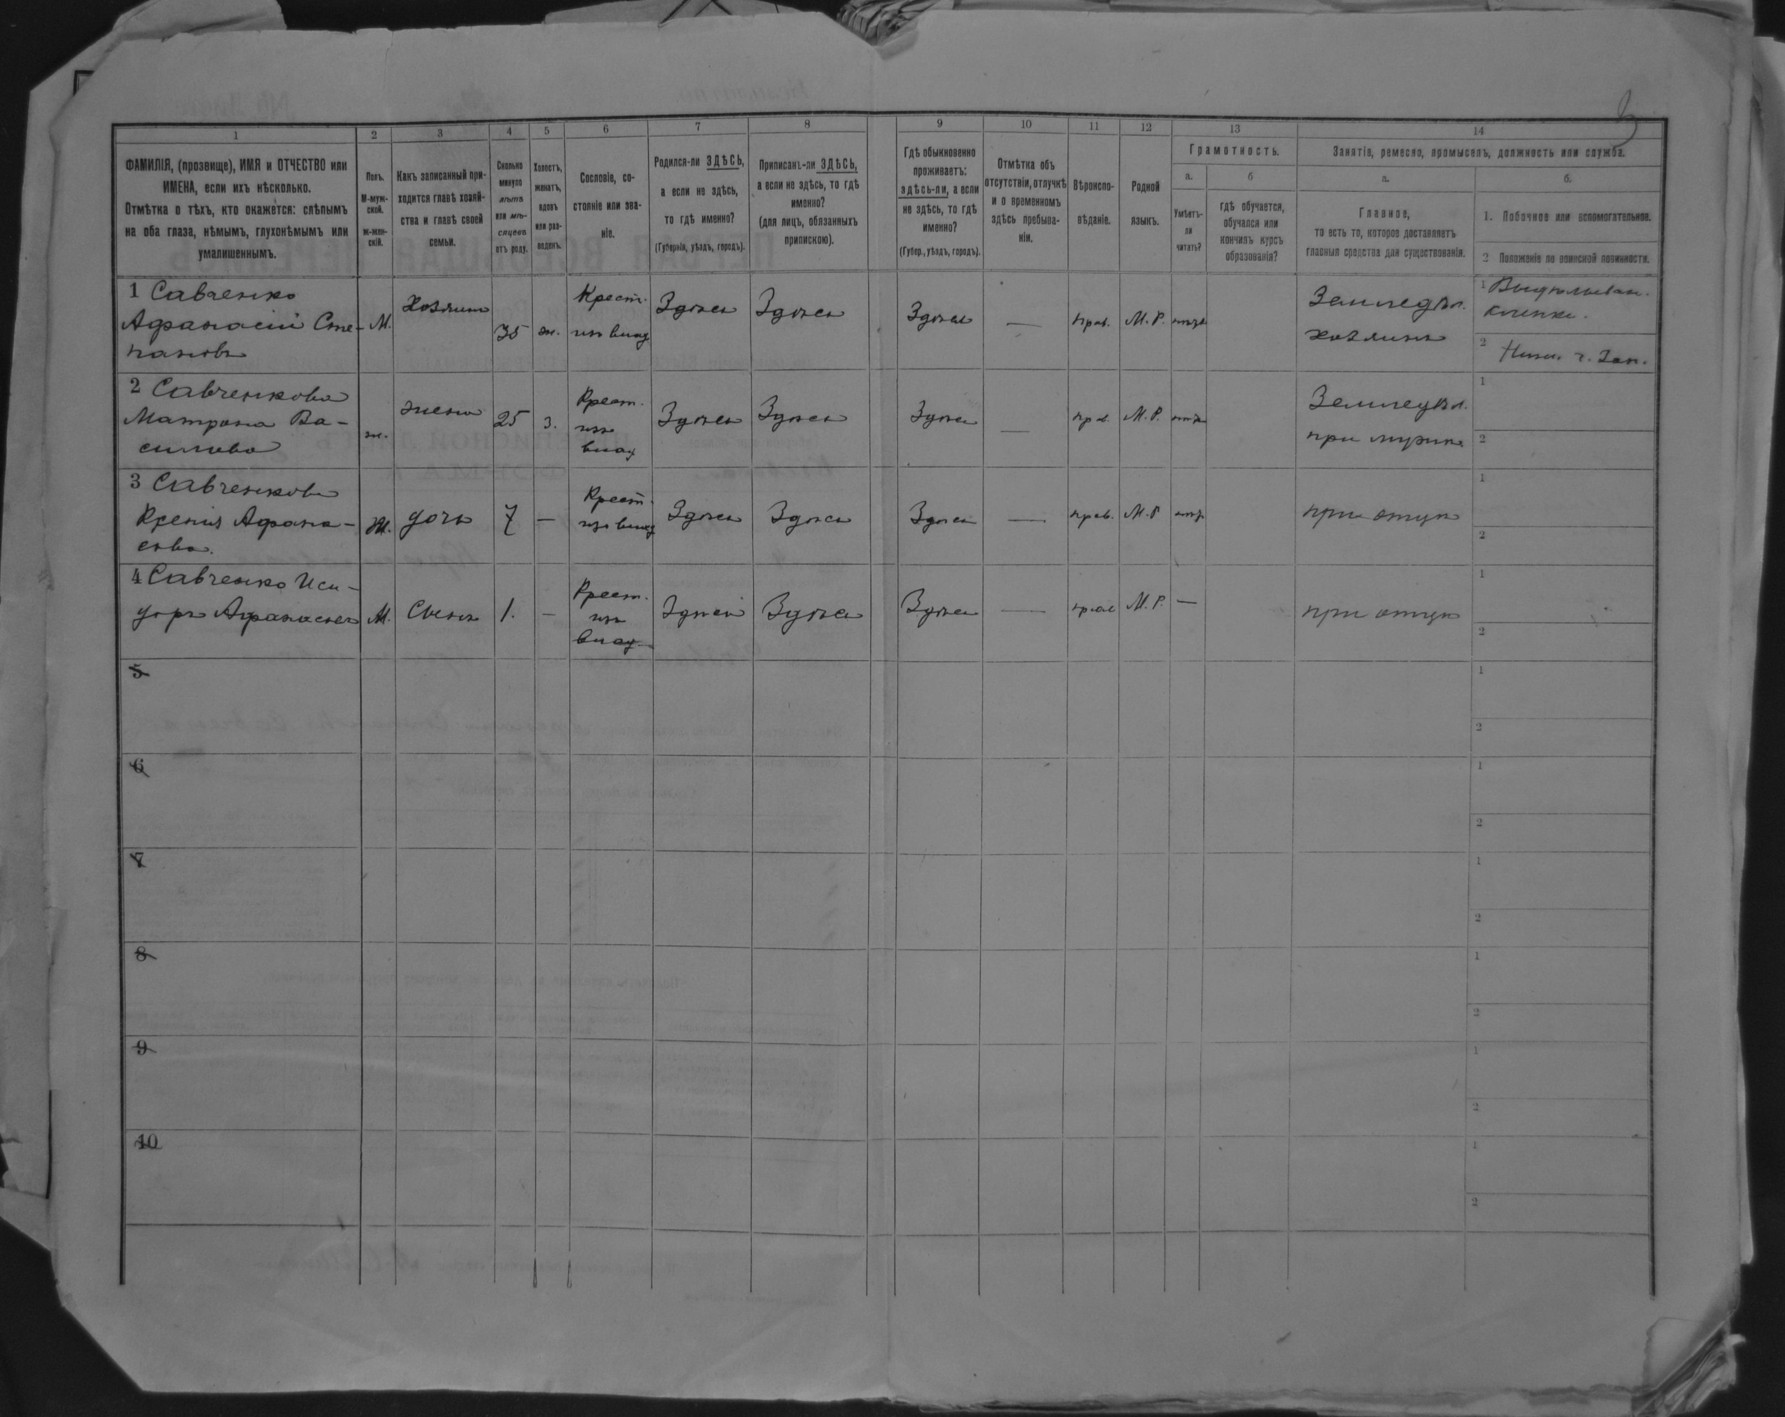 1 2 3 4 5 6 7 8 9 10 11 12 13 14
ФАМИЛІЯ, (прозвище), ИМЯ и ОТЧЕСТВО или
ИМЕНА, если ихъ нѣсколько.
Отмѣтка о тѣхъ, кто окажется: слѣпымъ
на оба глаза, нѣмымъ, глухонѣмымъ или
умалишеннымъ.
Полъ.
М-муж-
ской.
Ж-жен-
скій.
Какъ записанный при-
ходится главѣ хозяй-
ства и главѣ своей
семьи.
Сколько
минуло
лѣтъ
или мѣ-
сяцевъ
отъ роду.
Холостъ,
женатъ,
вдовъ
или раз-
веденъ.
Сословіе, со-
стояніе или зва-
ніе.
Родился-ли ЗДѢСЬ,
а если не здѣсь,
то гдѣ именно?
(Губернія, уѣздъ, городъ).
Приписанъ-ли ЗДѢСЬ,
а если не здѣсь, то гдѣ
именно?
(для лицъ, обязанныхъ
припискою).
Гдѣ обыкновенно
проживаетъ:
здѣсь-ли, а если
не здѣсь, то гдѣ
именно?
(Губер., уѣздъ, городъ).
Отмѣтка объ
отсутствіи, отлучкѣ
и о временномъ
здѣсь пребыва-
ніи.
Вѣроиспо-
вѣданіе.
Родной
языкъ.
Грамотность.
а. б
Умѣетъ-
ли
читать?
гдѣ обучается,
обучался или
кончилъ курсъ
образованія?
Занятіе, ремесло, промыселъ, должность или служба.
а. б.
Главное,
то есть то, которое доставляетъ
главныя средства для существованія.
1. Побочное или вспомогательное.
2 Положеніе по воинской повинности.
1 Савченко
Афанасій Сте-
пановъ
М.
Хозяинъ
35
ж.
Крест.
изъ влад
Здѣсь
Здѣсь
Здѣсь
—
прав.
М. Р.
Земледѣл.
хозяинъ
1
2
2 Савченкова
Матрона Ва-
силева
ж.
жена
25
з.
Крест.
изъ
влад
Здѣсь
Здѣсь
Здѣсь
—
пр в.
М. Р.
Земледѣл.
при мужѣ
1
2
3 Савченкова
Ксенія Афана-
сьева.
Ж.
дочь
7
—
Крест.
изъ влад
Здѣсь
Здѣсь
Здѣсь
—
прав.
М. Р
при отцѣ
1
2
4 Савченко Иси-
доръ Афанасьев
М.
Сынъ
1.
—
Крест.
изъ
влад
Здѣсь
Здѣсь
Здѣсь
—
прав
М. Р.
—
при отцѣ
1
2
5
1
2
6
1
2
7
1
2
8
1
2
9
1
2
10
1
2